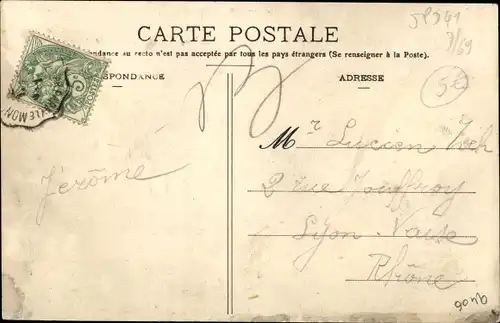 CARTE POSTALE
ndance au recto n'est pas acceptée par tous les pays étrangers (Se renseigner à la Poste).
SPONDANCE
ADRESSE
Mr Lucien
Jérôme
2 rue Jouffroy
Lyon Vaise
Rhône